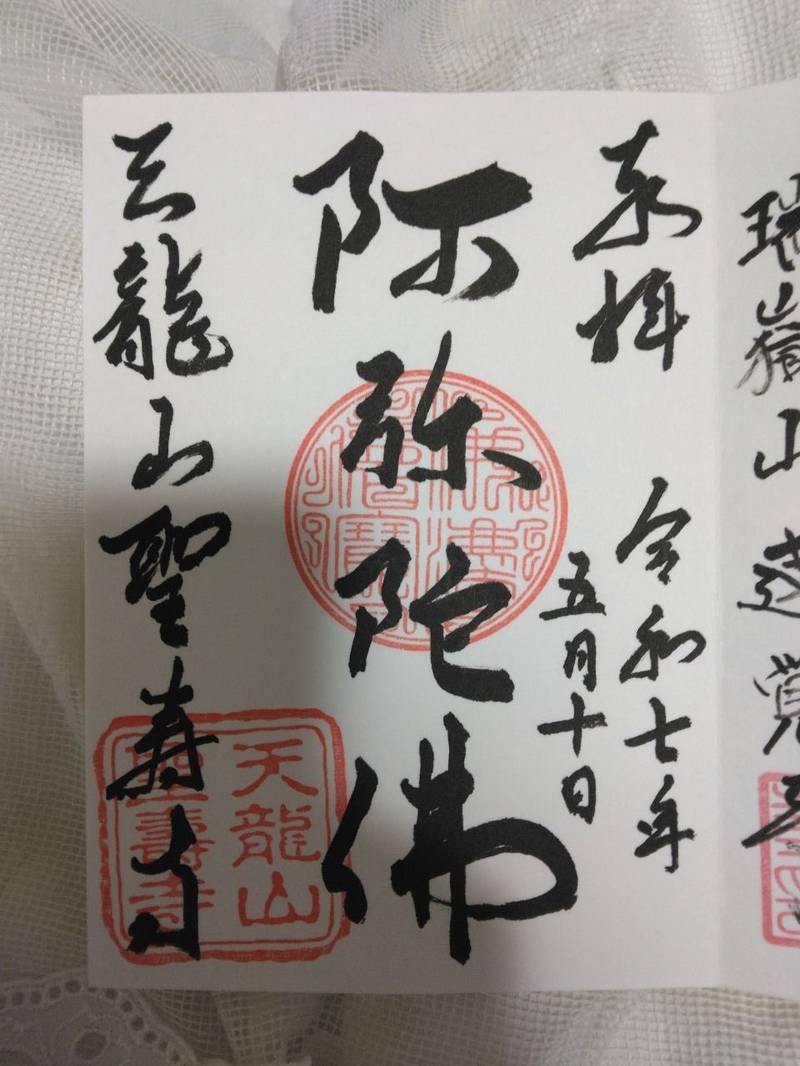 瑞嶽山
奉拝
令和七年
五月十日
阿弥陀佛
天龍山聖寿寺
天龍山
聖壽寺
佛法僧寶